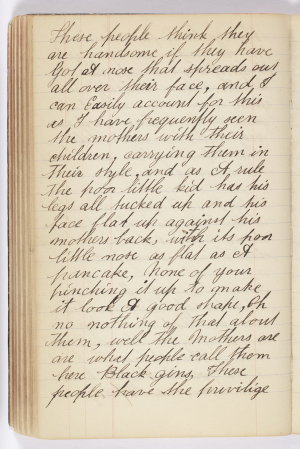 These people think they
are handsome if they have
got A nose that spreads out
all over their face, and I
can Easily account for this
as I have frequently seen
the mothers with their
children, carrying them in
their style, and as A rule
the poor little kid has his
legs all tucked up and his
face flat up against his
mothers back, with its poor
little nose as flat as A
pancake, None of your
pinching it up to make
it look A good shape, Oh
no nothing of that about
them, well the Mothers are
are what people call them
here Black gins, These
people have the privilige